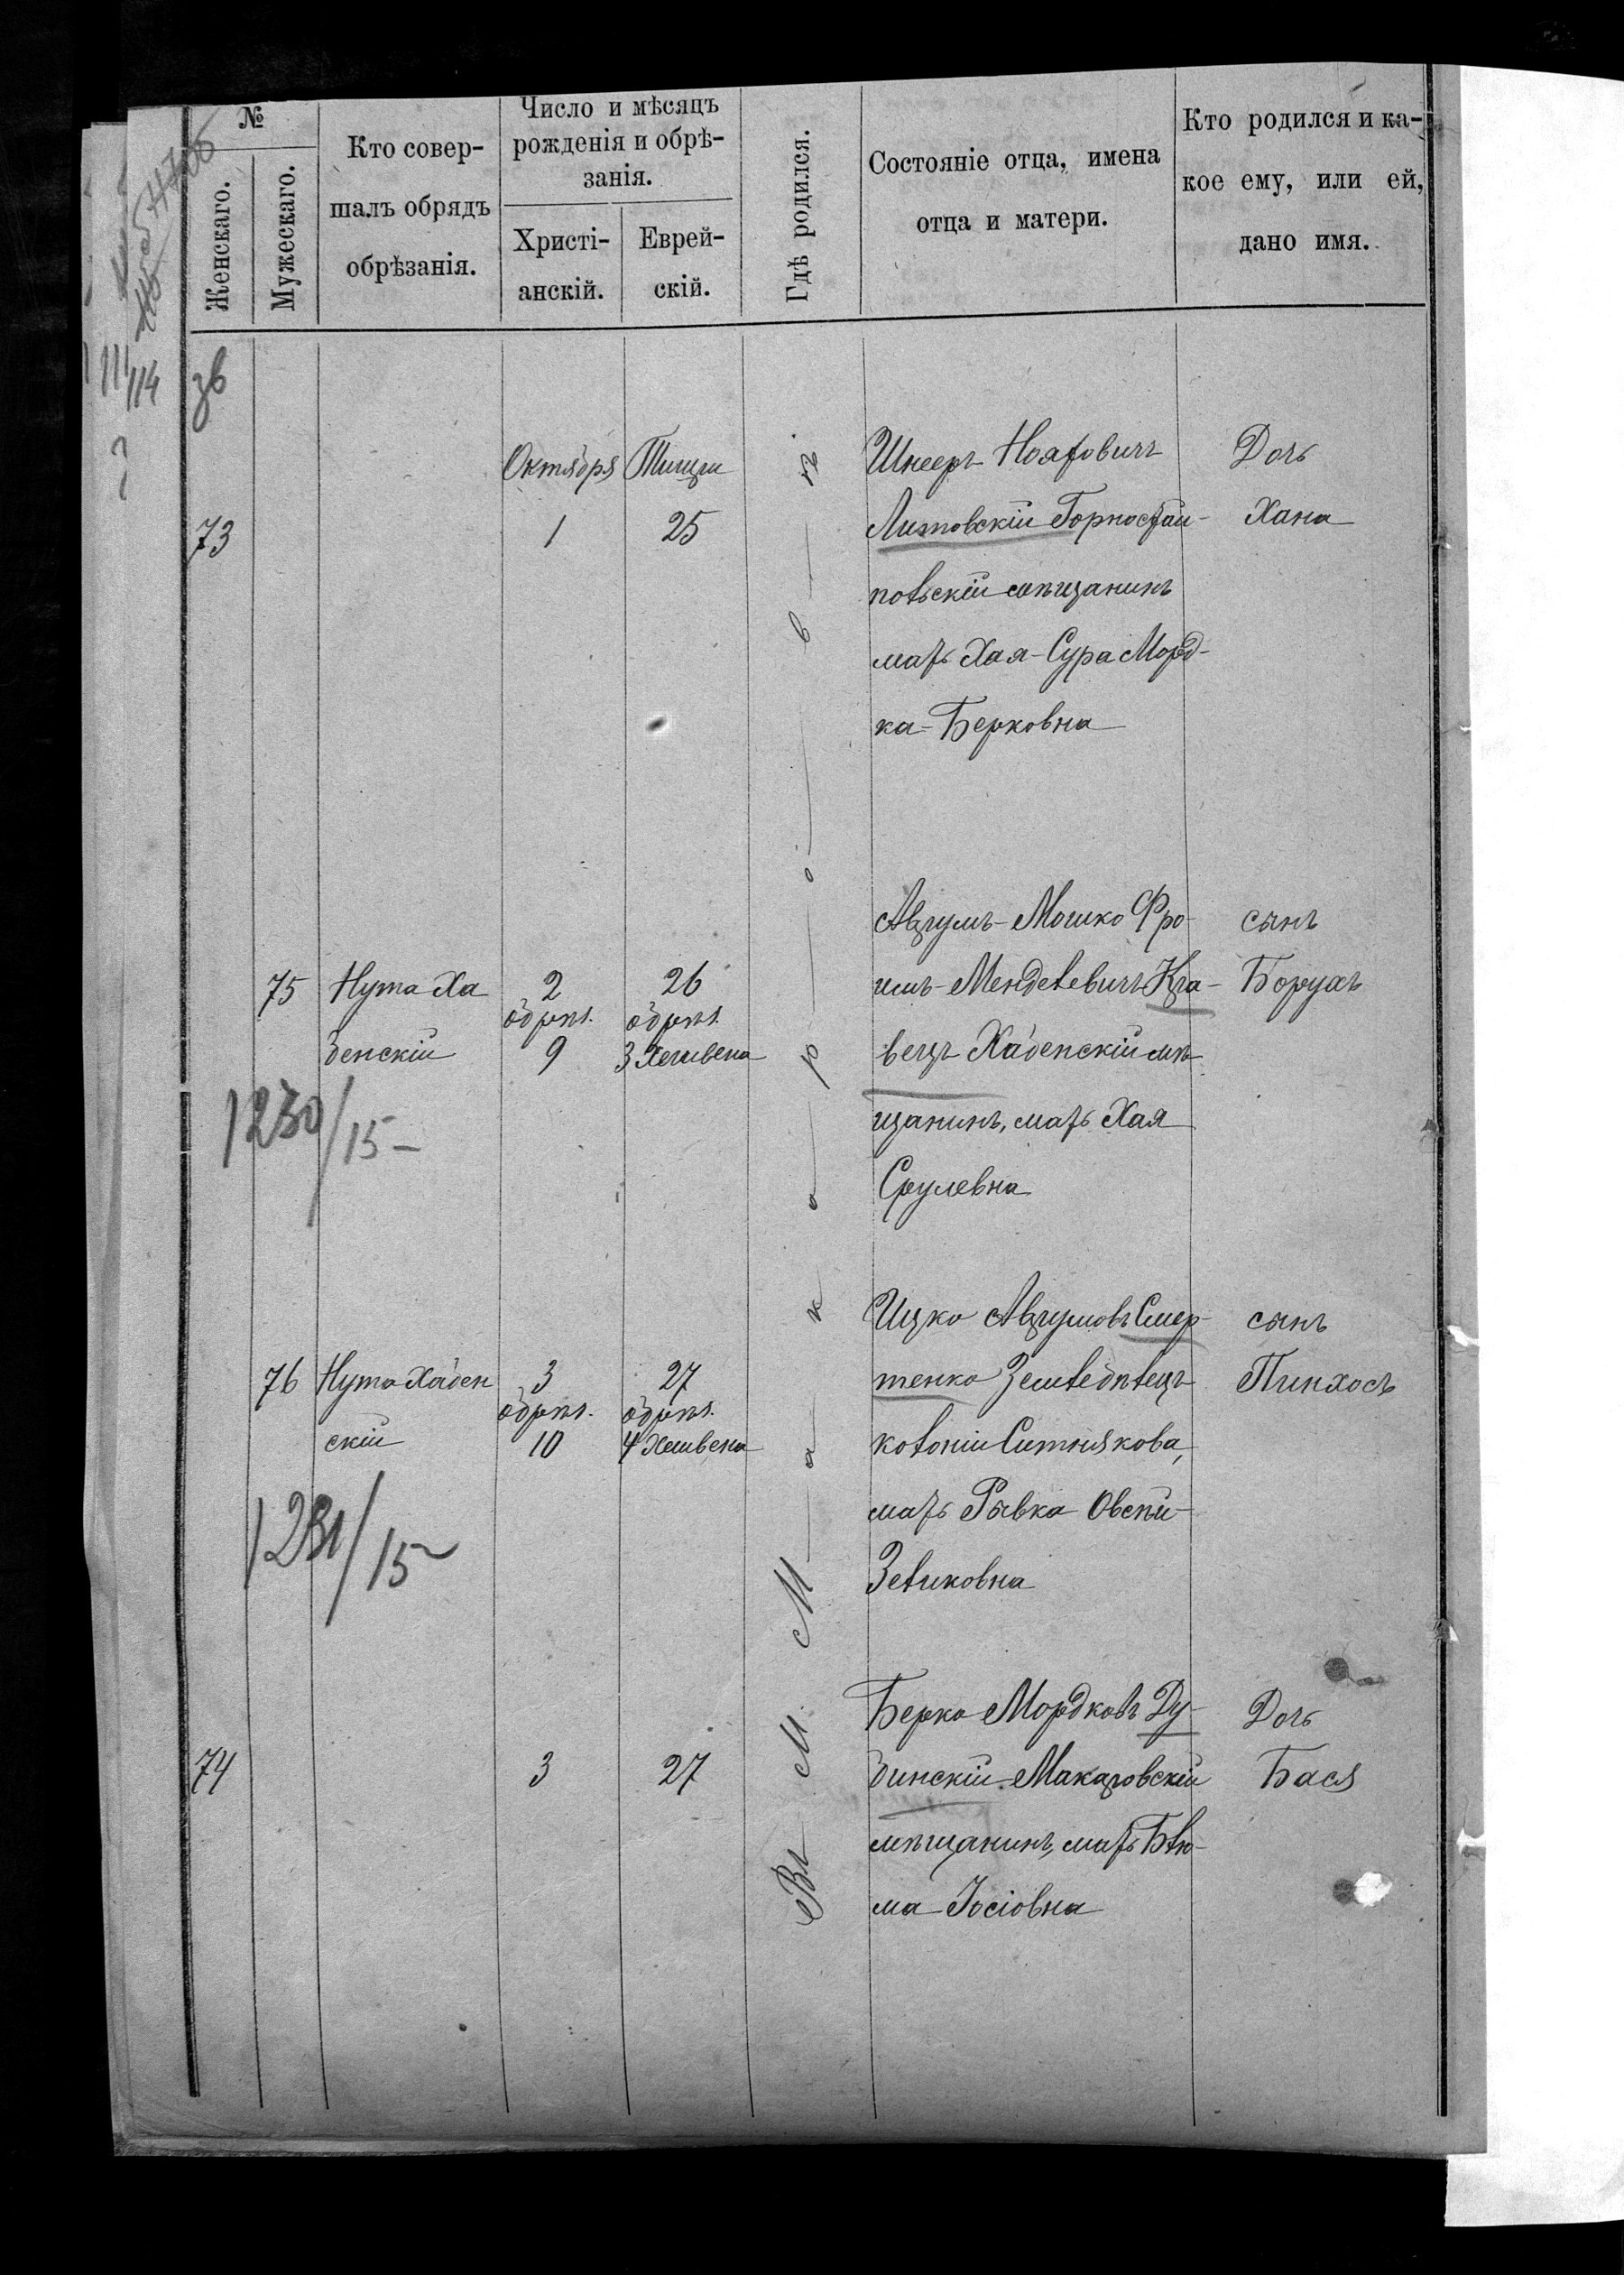 №
Женскаго.
Мужескаго.
Кто совер-
шалъ обрядъ
обрѣзанія.
Число и мѣсяцъ
рожденія и обрѣ-
занія.
Христі-
анскій.
Еврей-
скій.
Гдѣ родился.
Состояніе отца, имена
отца и матери.
Кто родился и ка-
кое ему, или ей,
дано имя.
114
Въ М. Макаровѣ
73
Октября
1
Тишри
25
Шнееръ Нояхович
Литовскій Горностай-
польскій мѣщанинъ
мать Хая-Сура Морд-
ка-Берковна
Дочь
Хана
75
Нута Ха
бенскій
2
обрѣз.
9
26
обрѣз.
3 Хешвена
Аврумъ-Мошко Фро-
имъ-Менделевичъ Кра-
вецъ Хабенскій мѣ-
щанинъ, мать Хая
Срулевна
сынъ
Борухъ
1230/15-
76
Нута Хабен
скій
3
обрѣз.
10
27
обрѣз.
4 Хешвена
Ицко Аврумовъ Смер-
тенко Земледѣлецъ
колоніи Ситнякова,
мать Рывка Овсѣй-
Зеликовна
сынъ
Пинхосъ
1231/15
74
3
27
Берко Мордковъ Ду-
бинскій Макаровскій
мѣщанинъ, мать Блю-
ма Іосіовна
Дочь
Бася